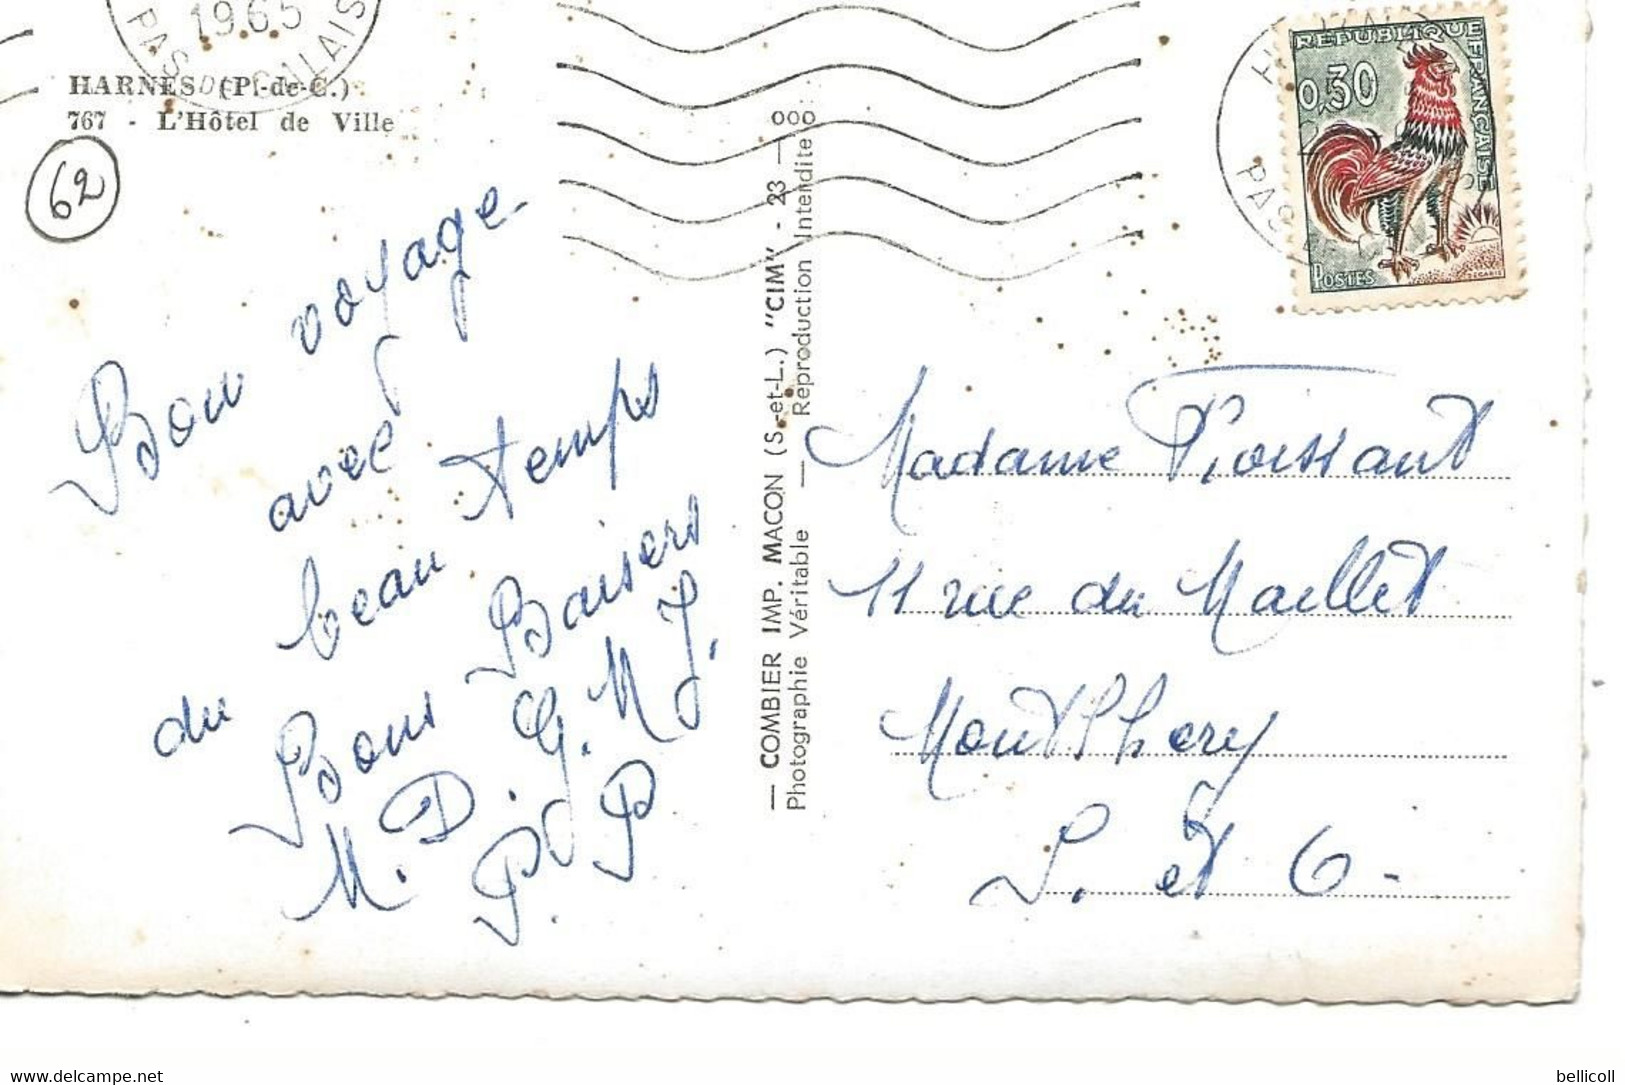 1965
PAS DE CALAIS
HARNES (P.-de-C.)
767 - L'Hôtel de Ville
62
Bon voyage
avec
du beau temps
Bons Baisers
M. D. G. M. J.
P. P
— COMBIER IMP. MACON (S.-et-L.) "CIM" - 23 — 000
Photographie Véritable — Reproduction Interdite
REPUBLIQUE FRANÇAISE
0,30
POSTES
DECARIS
PAS
Madame Poissant
11 rue du Maillet
Montlhery
S. et O -
delcampe.net
bellicoll